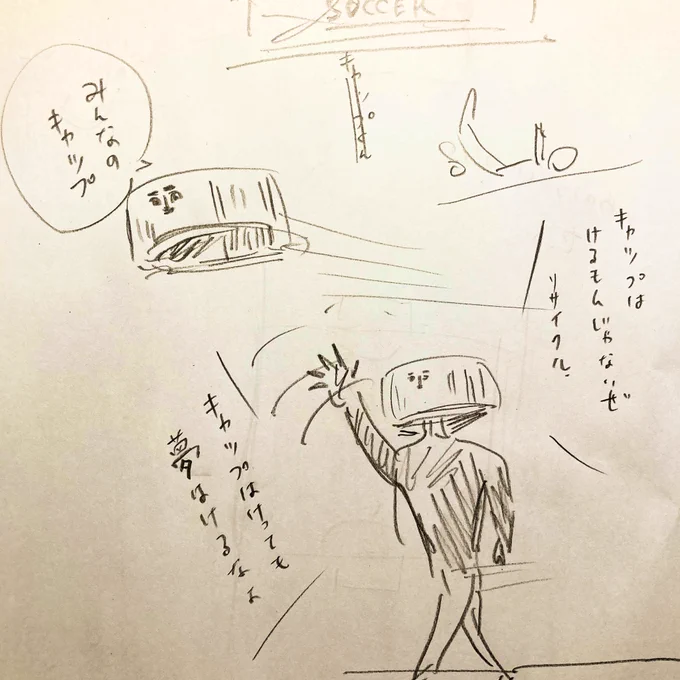 SOCCER
キャップマン
みんなの
キャップ
キャップは
けるもんじゃないぜ
リサイクル.
キャップはけっても
夢はけるなよ